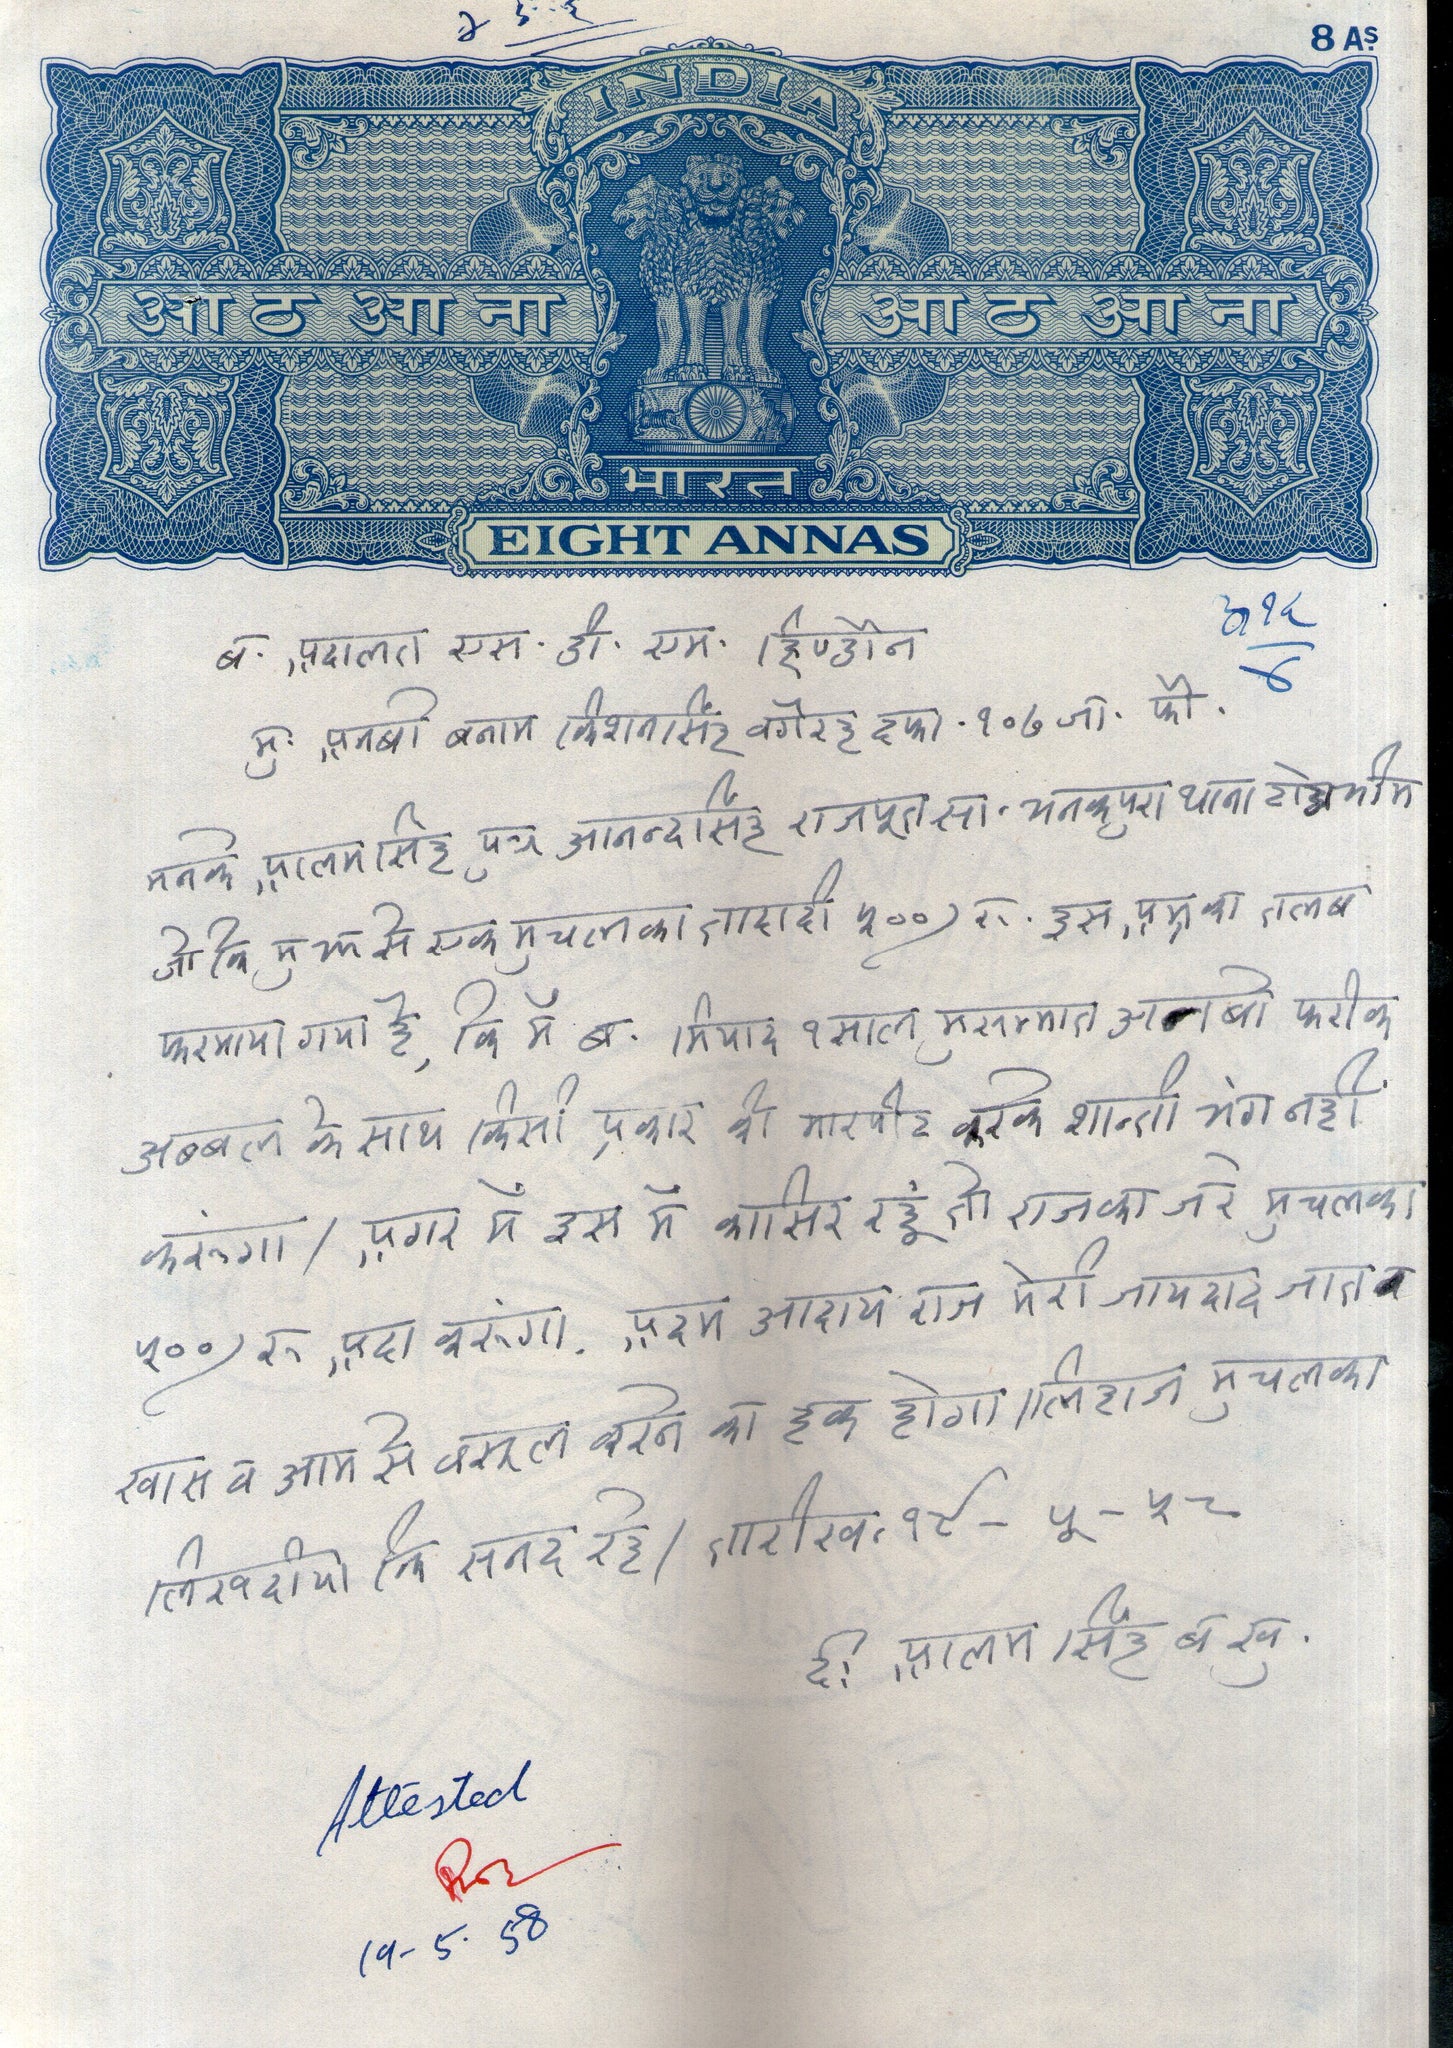 8 As.
INDIA
आठ आना आठ आना
भारत
EIGHT ANNAS
ब. अदालत एस. डी. एम. हिण्डौन
मु. अनबी बनाम किशनसिंह वगैरह दफा. १०७ जा. फौ.
मनके आलमसिंह पुत्र आनन्दसिंह राजपूत सा. थाना टोडाभीम
जो कि मुझ से एक मुचलका तादादी ५००) रु. इस अम्र का तलब
फरमाया गया है, कि मैं ब. मियाद १ साल मुसम्मात अनबी फरीक
अब्बल के साथ किसी प्रकार की मारपीट करके शान्ती भंग नहीं
करूंगा / अगर मैं इस में कासिर रहूं तो राज का जरे मुचलका
५००) रु अदा करूंगा. अदम आदाय राज मेरी जायदाद जात व
खास व आम से वसूल करने का हक होगा / लिहाज मुचलका
लिख दीया कि सनद रहे / तारीख. १९ - ५ - ५८
द. आलम सिंह ब खु.
Attested
19-5-58